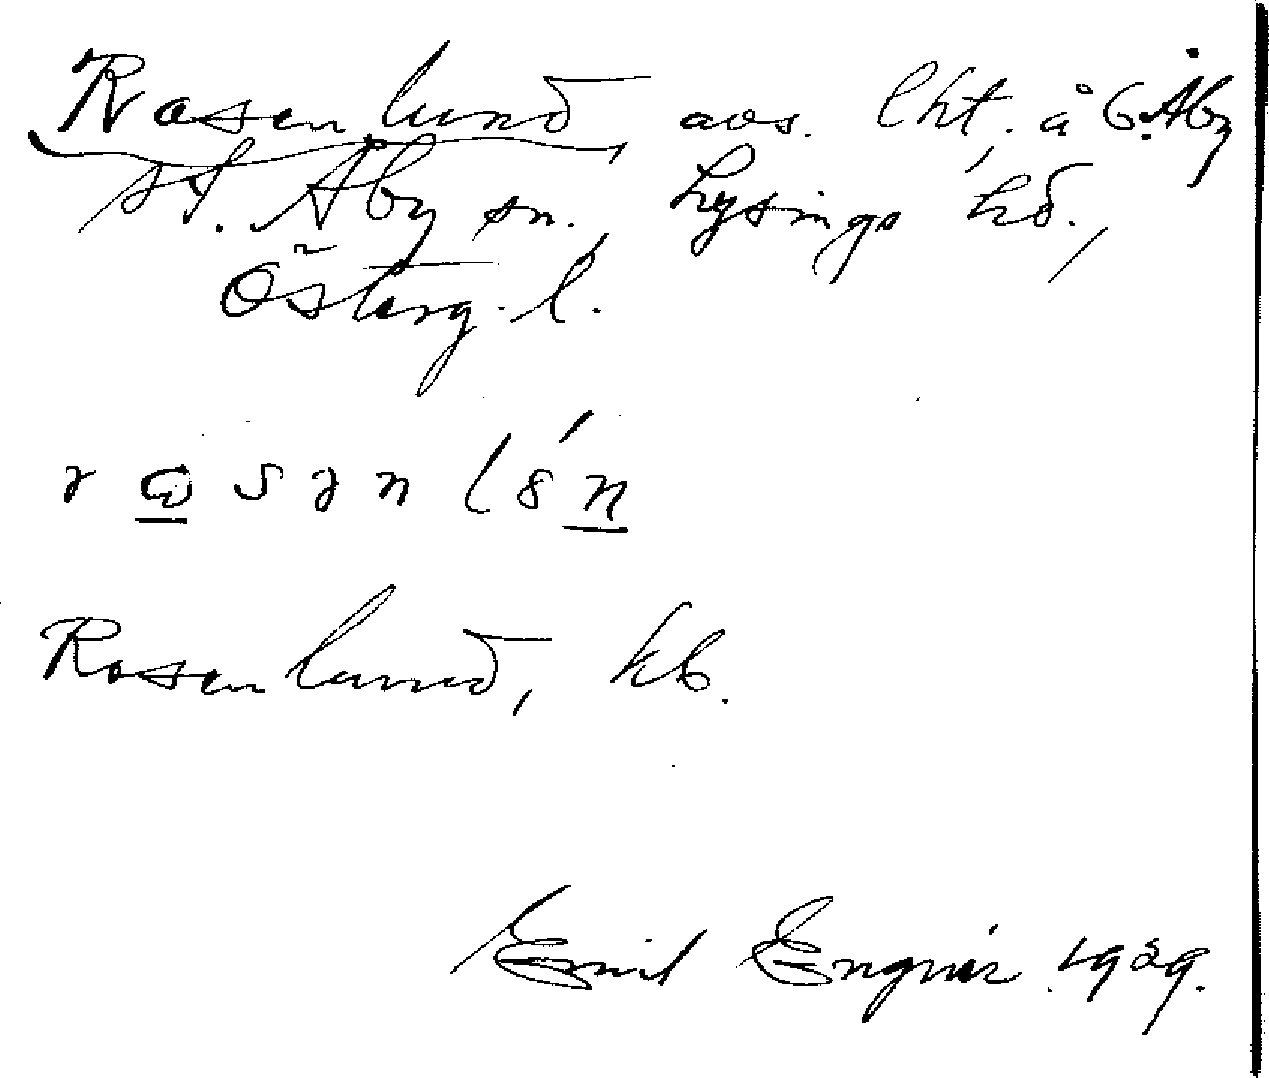 Rosenlund, avs. lht. å 6. Åby,
st. Åby sn. Lysings hd.,
Österg. l.
rosənl n
Rosenlund, kb.
Emil Engnér 1929.